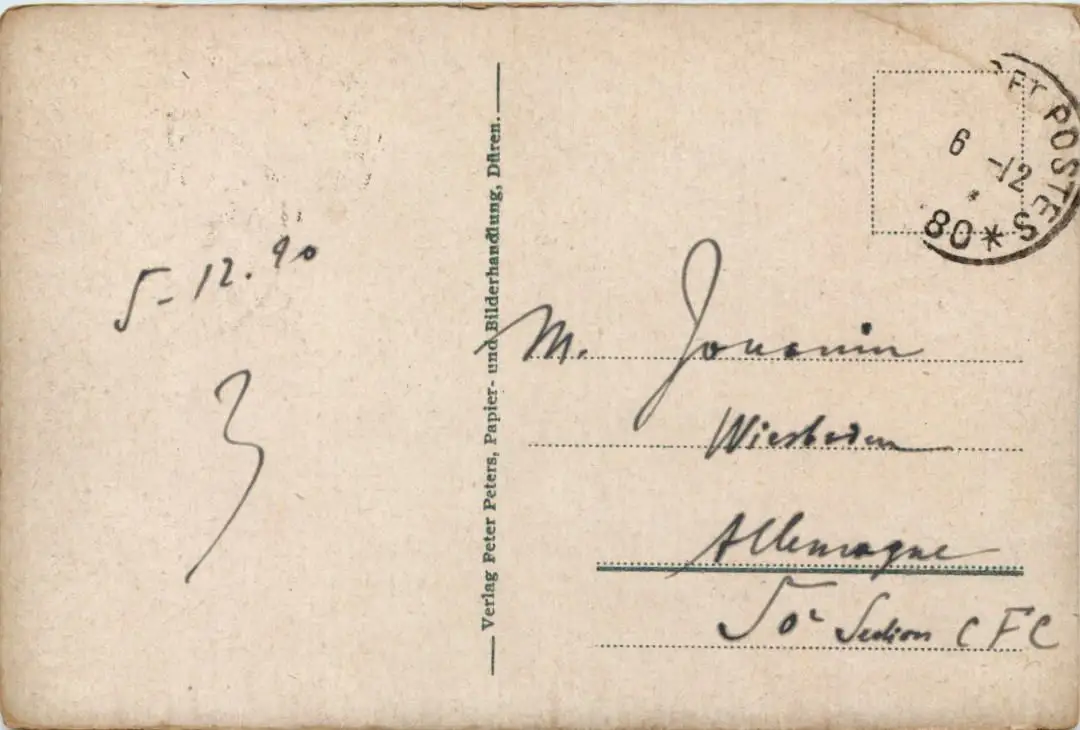 5-12.90
3
Verlag Peter Peters, Papier- und Bilderhandlung, Düren.
ET POSTES
6 -12
80 * S
M. Jouanin
Wiesbaden
Allemagne
50e Section CFC